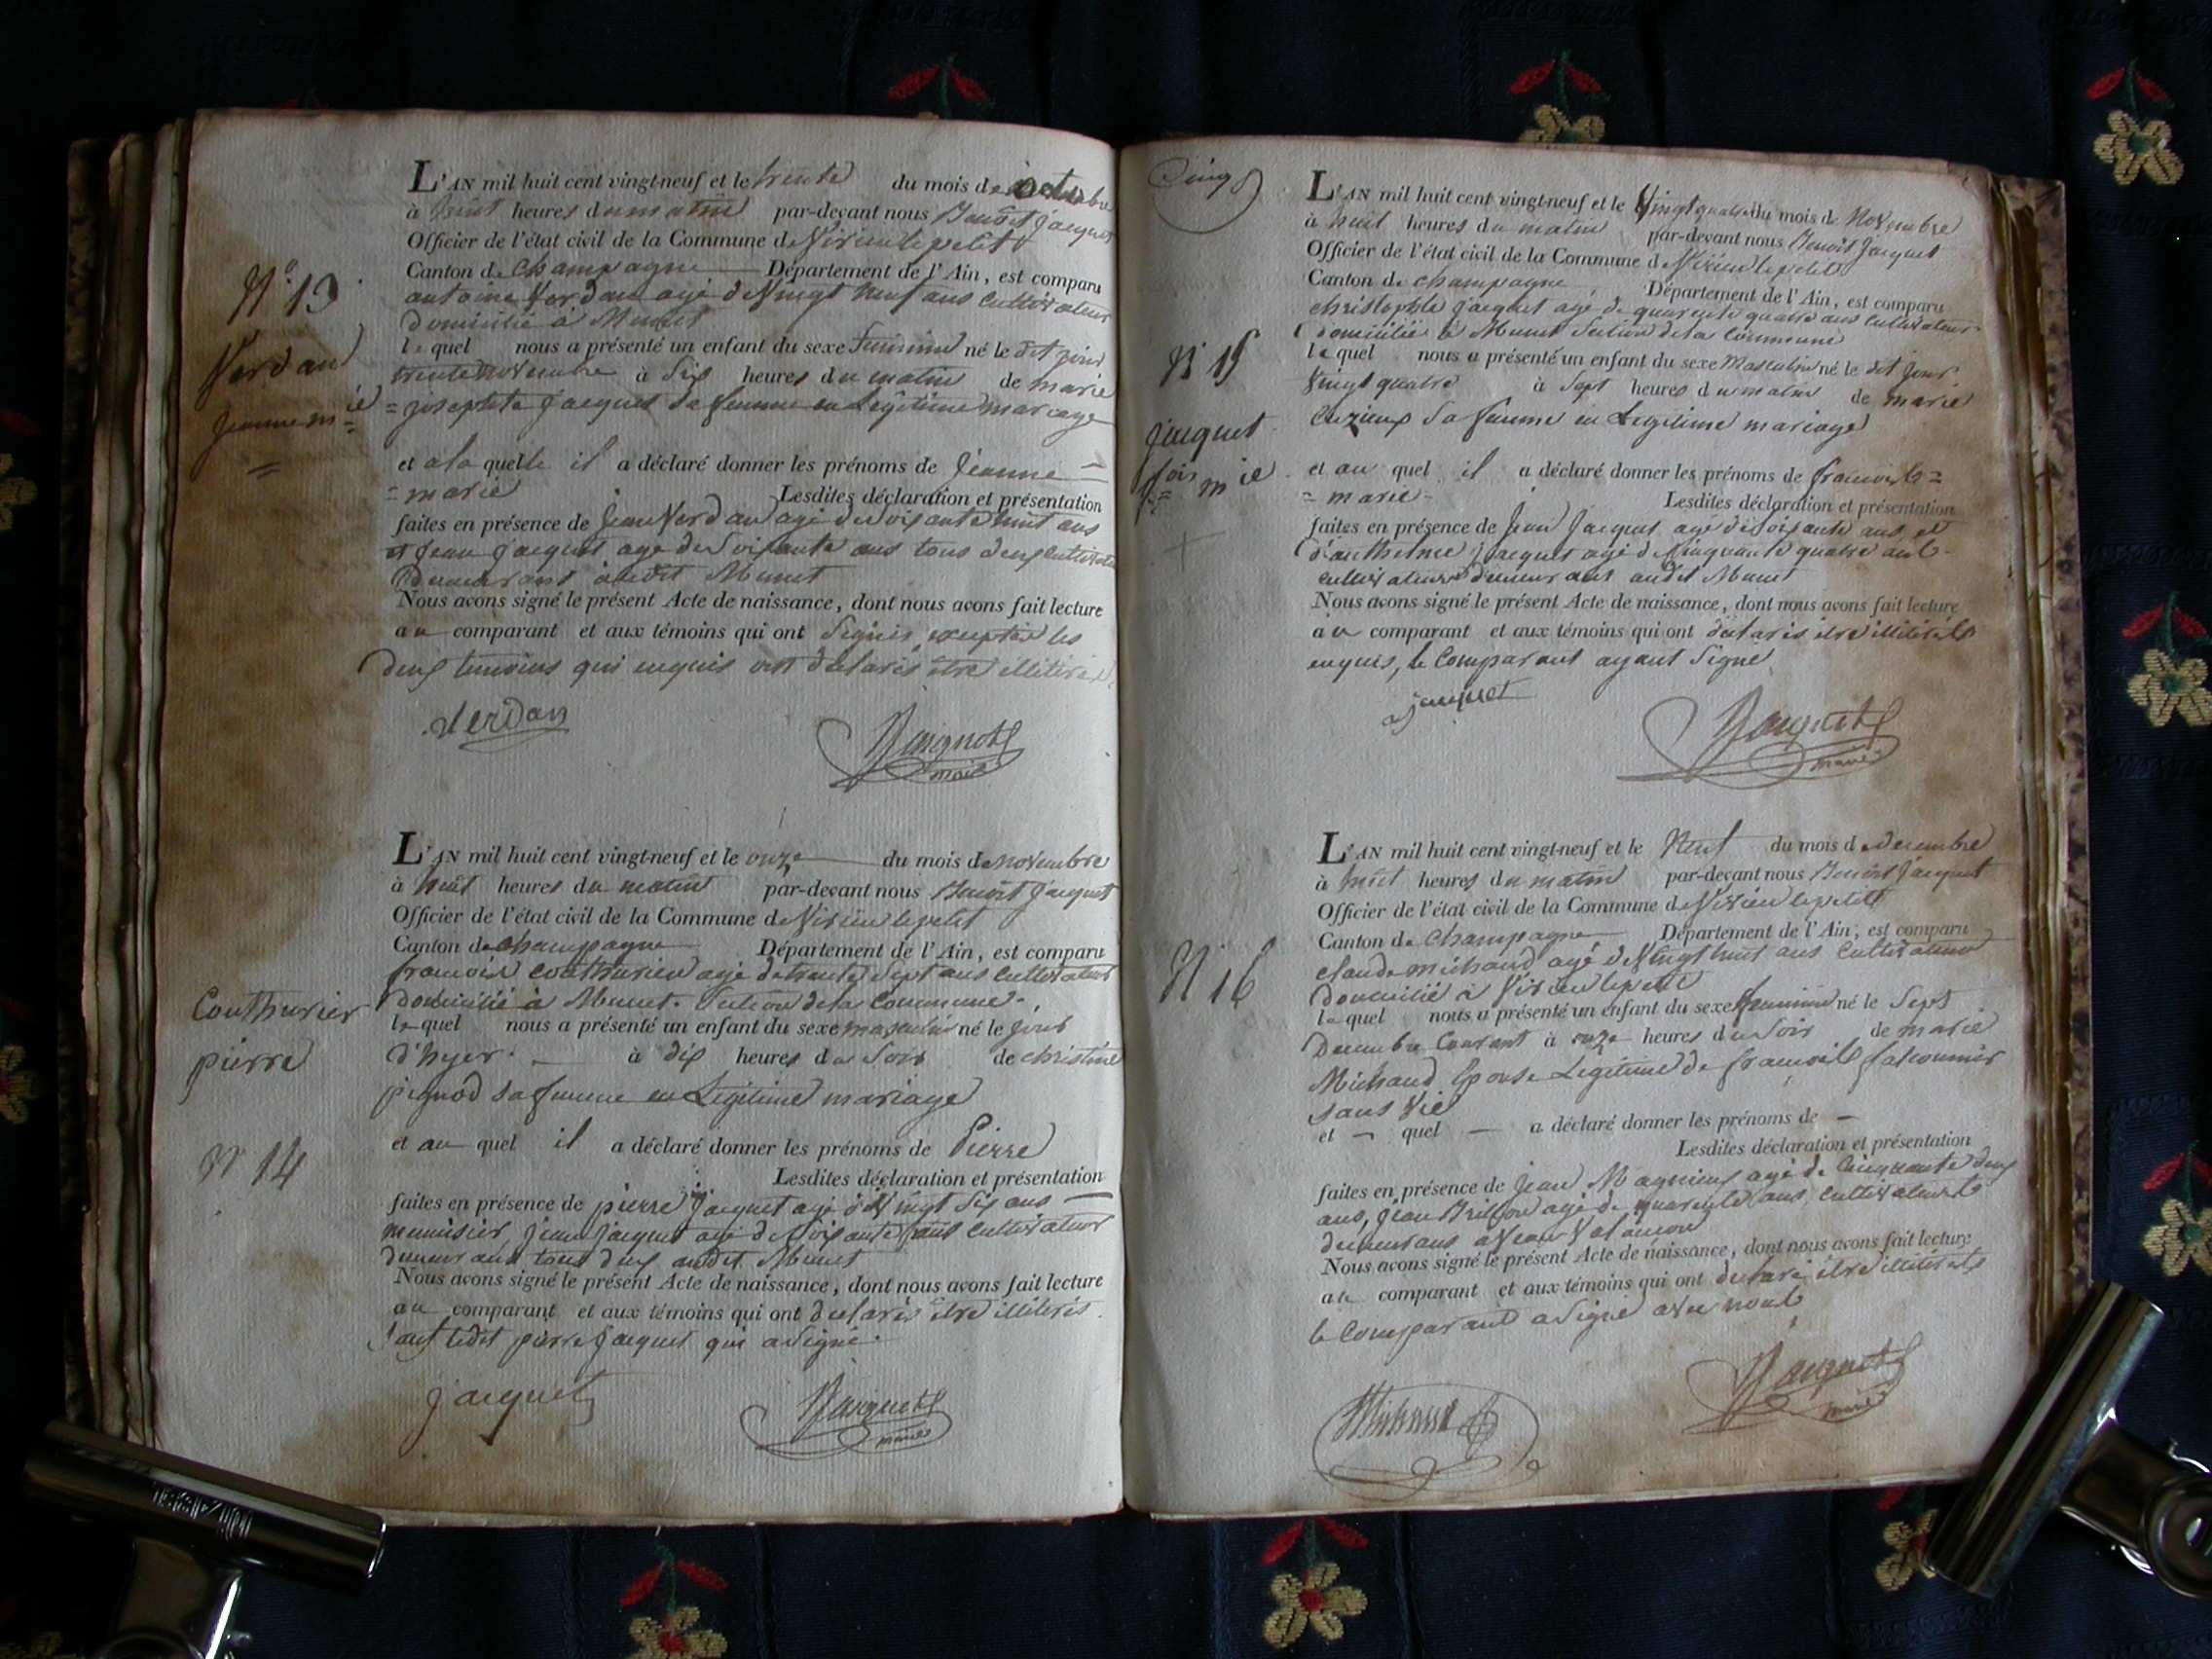 L'AN mil huit cent vingt-neuf et le trente du mois de octobre
à huit heures du matin par-devant nous Benoit Jacquet
Officier de l'état civil de la Commune de Virieu le petit
Canton de Champagne Département de l'Ain, est comparu
antoine Verdan agé de Vingt neuf ans Cultivateur
domicilié à Munet
lequel nous a présenté un enfant du sexe feminin né le dit jour
trente novembre à six heures du matin de marie
= josephte jacquet sa femme en Legitime mariage
et a la quelle il a déclaré donner les prénoms de Jeanne =
= marie Lesdites déclaration et présentation
faites en présence de Jean Verdan agé de soixante huit ans
et Jean Jacquet agé de Soixante ans tous deux cultivateurs
demeurans audit Munet
Nous avons signé le présent Acte de naissance, dont nous avons fait lecture
au comparant et aux témoins qui ont signés, exceptés les
deux temoins qui enquis ont declarés être illiterés.
Verdan
BJacquet
maire
N° 13
Verdan
Jeanne mie
=
L'AN mil huit cent vingt-neuf et le onze du mois de novembre
à huit heures du matin par-devant nous Benoit Jacquet
Officier de l'état civil de la Commune de Virieu le petit
Canton de Champagne Département de l'Ain, est comparu
francois couthurier agé de trente sept ans cultivateur
domicilié à Munet. Section de la Commune
lequel nous a présenté un enfant du sexe masculin né le jour
d'hyer à dix heures du soir de christine
pignod sa femme en Legitime mariage
et au quel il a déclaré donner les prénoms de Pierre
Lesdites déclaration et présentation
faites en présence de pierre Jacquet agé de Vingt six ans
menuisier, Jean Jacquet agé de Soixante ans cultivateur
demeurans tous deux audit Munet
Nous avons signé le présent Acte de naissance, dont nous avons fait lecture
au comparant et aux témoins qui ont declarés être illiterés.
Sauf ledit pierre Jacquet qui a signé.
Jacquet
BJacquet
maire
Couthurier
pierre
N° 14
Cinq
L'AN mil huit cent vingt-neuf et le Vingt quatre du mois de Novembre
à huit heures du matin par-devant nous Benoit Jacquet
Officier de l'état civil de la Commune de Virieu le petit
Canton de champagne Département de l'Ain, est comparu
christophle jacquet agé de quarente quatre ans cultivateur
domicilié à Munet Section de la Commune
lequel nous a présenté un enfant du sexe Masculin né le dit jour
Vingt quatre à sept heures du matin de marie
Cuzieux sa femme en Legitime mariage
et au quel il a déclaré donner les prénoms de francois =
= marie = Lesdites déclaration et présentation
faites en présence de Jean Jacquet agé de soixante ans, et
d'anthelme jacquet agé de Cinquante quatre ans
cultivateurs demeurans audit Munet
Nous avons signé le présent Acte de naissance, dont nous avons fait lecture
au comparant et aux témoins qui ont declarés être illiterés
enquis, le Comparant ayant Signé
jacquet
BJacquet
maire
N° 15
Jacquet
fois mie
L'AN mil huit cent vingt-neuf et le Neuf du mois de decembre
à huit heures du matin par-devant nous Benoit Jacquet
Officier de l'état civil de la Commune de Virieu le petit
Canton de Champagne Département de l'Ain, est comparu
claude michaud agé de Vingt huit ans Cultivateur
domicilié à Virieu le petit
lequel nous a présenté un enfant du sexe feminin né le Sept
Decembre Courant à onze heures du Soir de marie
Michaud Epouse Legitime de francois falconnier
sans Vie
et quel a déclaré donner les prénoms de
Lesdites déclaration et présentation
faites en présence de Jean Magnieux agé de Cinquante deux
ans, Jean Brillon agé de quarente ans, cultivateurs
demeurans
Nous avons signé le présent Acte de naissance, dont nous avons fait lecture
au comparant et aux témoins qui ont declaré être illiterés
le Comparant a signé avec nous
Michaud
BJacquet
maire
N° 16